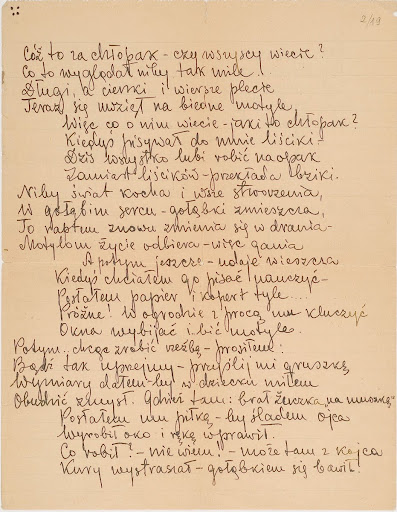 3/19
Cóż to za chłopak - czy wszyscy wiecie?
Co to wyglądał niby tak mile..
Długi, a cienki i wiersze plecie
Teraz się wziął na biedne motyle,
Więc co o nim wiecie - jaki to chłopak?
Kiedyś pisywał do mnie liściki -
Dziś wszystko lubi robić naopak
Zamiast liścików - przekłada bziki.
Niby świat kocha i wsze stworzenia,
W gołębim sercu - gołąbki zmieszcza,
To raptem znowu zmienia się w drania -
Motylom życie odbiera - więc gania
A potym jeszcze - udaje wieszcza
Kiedyś chciałem go pisać nauczyć -
Posłałem papier i kopert tyle....
Próżne! w ogrodzie z procą mu kluczyć
Okna wybijać i bić motyle.
Potym.. chcąc zrobić rzeźbą - prosiłem:
Bądź tak uprzejmy - przyślij mi gruszkę,
Wymiary dałem - by w dziecku miłem
Obudzić zmysł. Gdzież tam: brał żuczka „na muszkę"
Posłałem mu piłkę - by śladem ojca
Wyrobił oko i rękę wprawił.
Co robił? - nie wiem! - może tam z kojca
Kury wystraszał - gołąbkiem się bawił!